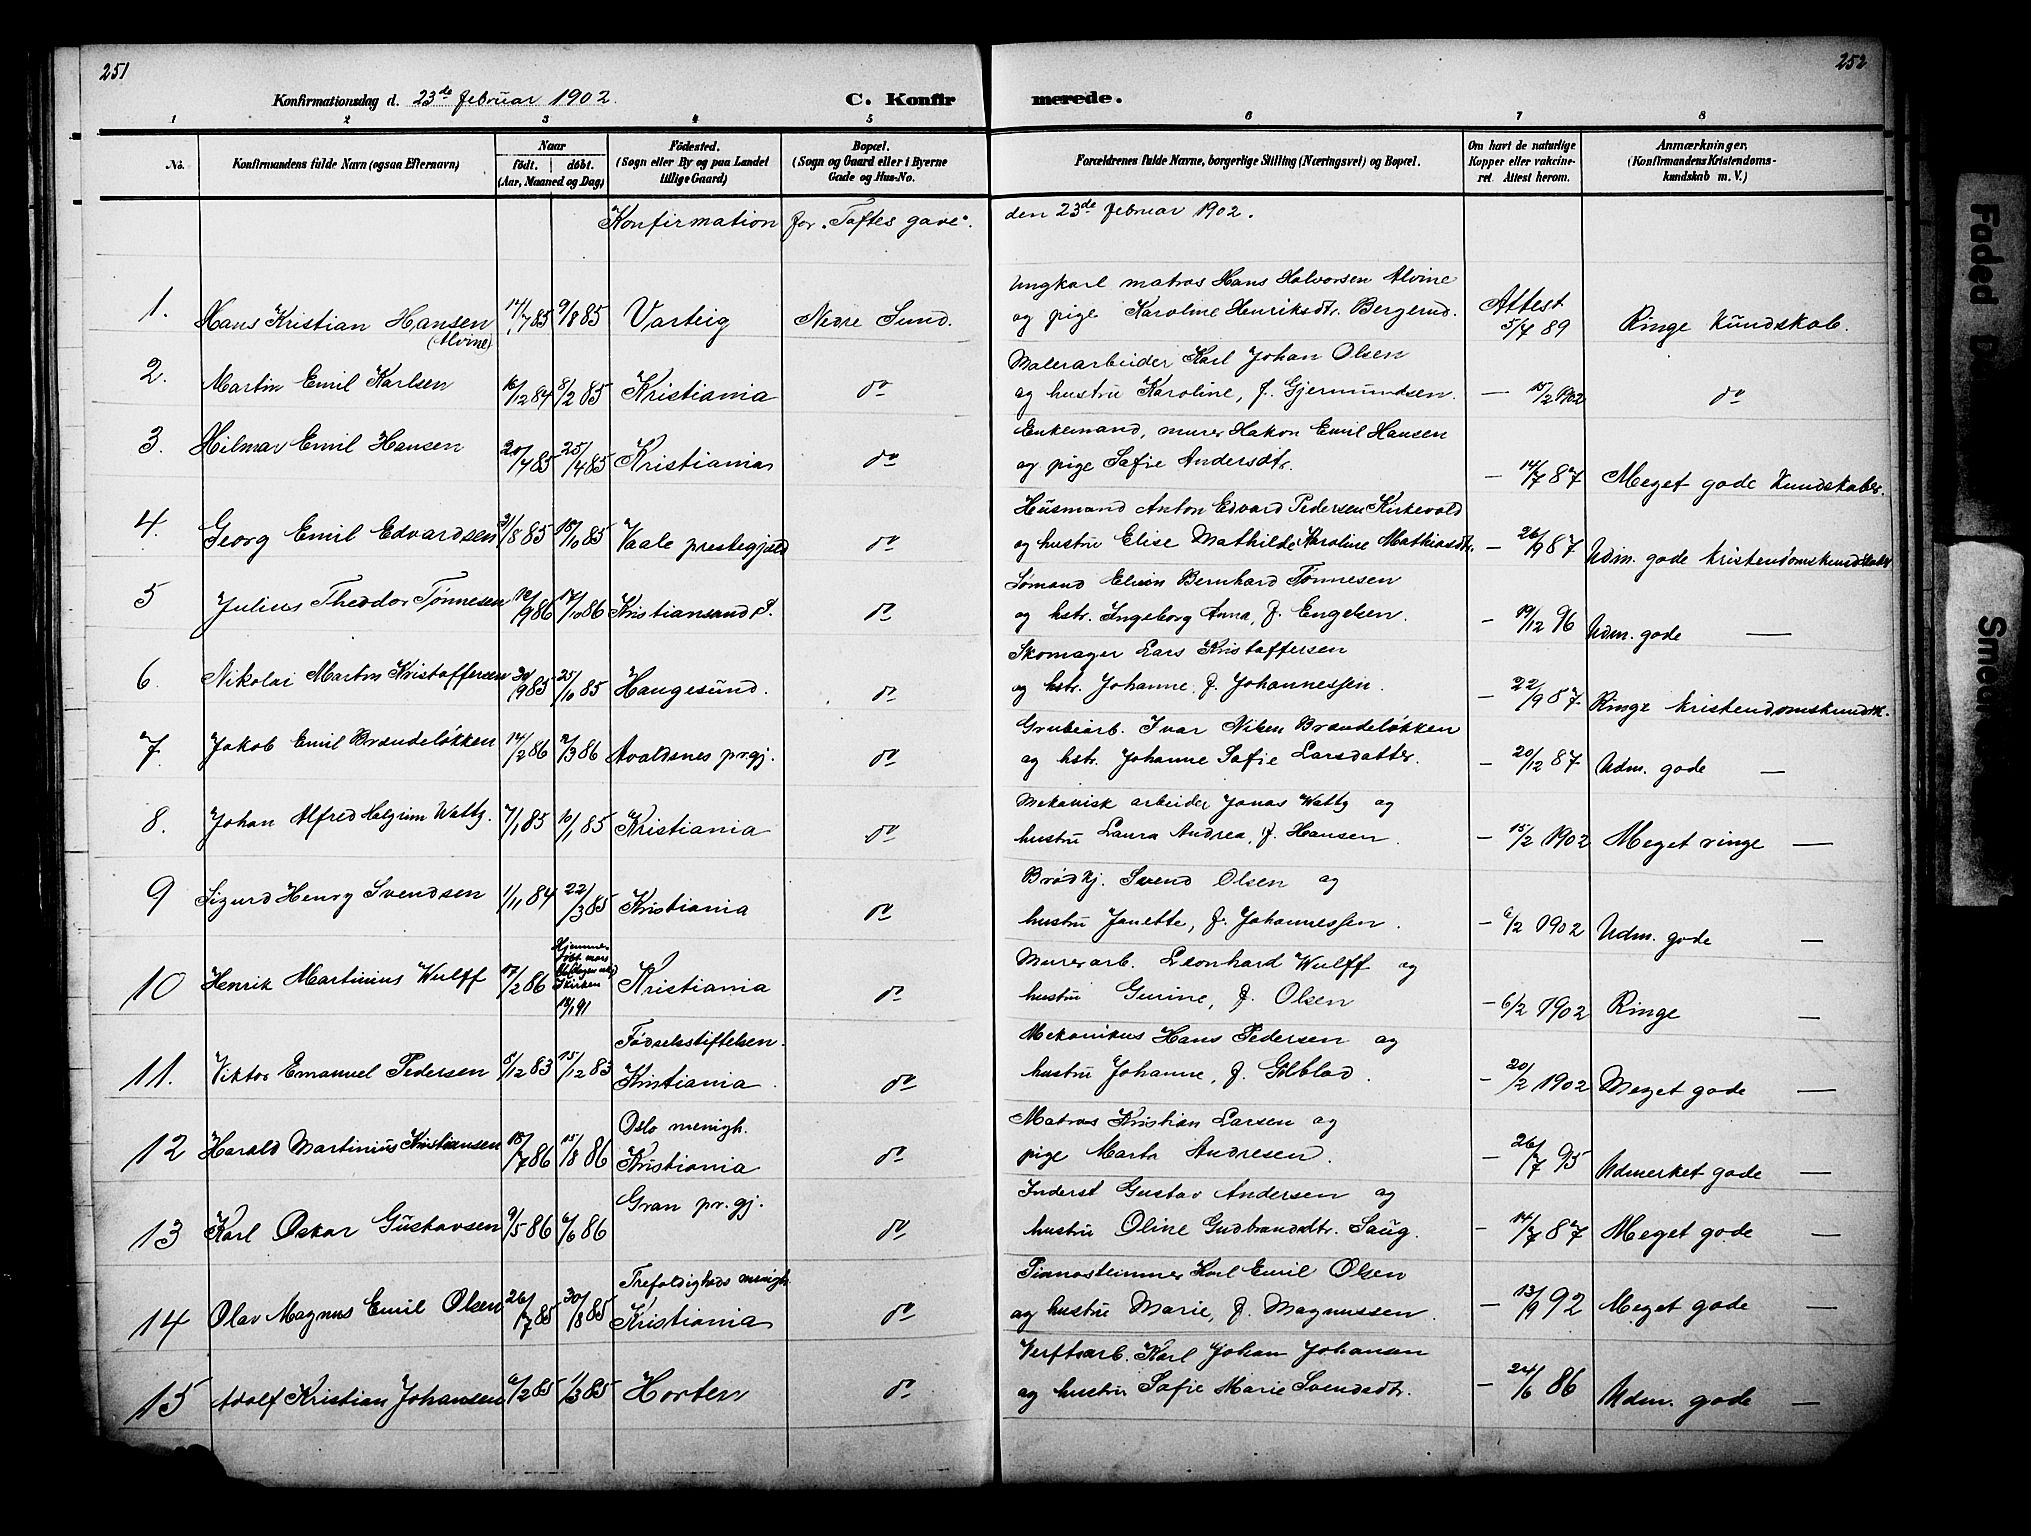 251
252
Konfirmationsdag d. 23de februar 1902. C. Konfir merede.
1 2 3 4 5 6 7 8
No. Konfirmandens fulde Navn (ogsaa Efternavn) Naar født. døbt. (Aar, Maaned og Dag) Fødested. (Sogn eller By og paa Landet tillige Gaard) Bopæl. (Sogn og Gaard eller i Byerne Gade og Hus-No. Forældrenes fulde Navne, borgerlige Stilling (Næringsvei) og Bopæl. Om havt de naturlige Kopper eller vakcineret. Attest herom. Anmærkninger. (Konfirmandens Kristendomskundskab m. V.)
Konfirmation for "Toftes gave". den 23de februar 1902.
Ungkarl matros Hans Halvorsen Alvine
1. Hans Kristian Hansen (Alvine) 17/7 85 9/8 85 Varteig Nedre Sund. og pige Karoline Henriksdtr. Bergerud. Attest 5/7 89 Ringe Kundskab.
Malerarbeider Karl Johan Olsen
2. Martin Emil Karlsen 16/12 84 8/2 85 Kristiania do og hustru Karoline, f. Gjermundsen. — 15/2 1902 do
Enkemand, murer Hakon Emil Hansen
3. Hilmar Emil Hansen 20/4 85 25/4 85 Kristiania do og pige Sofie Andersdtr. — 14/7 87 Meget gode Kundskaber.
Husmand Anton Edvard Pedersen Kirkevold
4. Georg Emil Edvardsen 31/8 85 18/10 85 Vaale prestegjeld do og hustru Elise Mathilde Karoline Mathiasdtr. — 26/9 87 Udm. gode kristendomskundskaber
Sømand Bernhard Tønnesen
5 Julius Theodor Tønnesen 12/9 86 17/10 86 Kristiansund S. do og hstr. Ingeborg Anna, f. Engelsen. — 19/12 96 Udm. gode —
Skomager Lars Kristoffersen
6. Nikolai Martin Kristoffersen 30/9 85 25/10 85 Haugesund. do og hstr. Johanne f. Johannessen. — 22/9 87 Ringe kristendomskundsk.
Grubearb. Ivar Nilsen Brændeløkken
7. Jakob Emil Brændeløkken 14/2 86 2/3 86 Avaldsnes pr.gj. do og hstr. Johanne Sofie Larsdatter. — 20/12 87 Udm. gode —
Mekanisk arbeider Jonas Watty og
8. Johan Alfred Halgrim Watty. 7/1 85 10/1 85 Kristiania do hustru Laura Andrea, f. Hansen. — 15/2 1902 Meget ringe —
Brødkj. Svend Olsen og
9 Sigurd Henry Svendsen 1/11 84 22/3 85 Kristiania do hustru Janette, f. Johannessen. — 6/2 1902 Udm. gode —
Murerarb. Leonhard Wulff og
10 Henrik Martinius Wulff 17/2 86 Hjemmedøbt i kirken 18/1 91 Kristiania do hustru Gurine, f. Olsen — 6/2 1902 Ringe —
Fødselsstiftelsen. Mekanikus Hans Pedersen og
11. Viktor Emanuel Pedersen 5/12 83 15/12 83 Kristiania. do hustru Johanne, f. Golblad. — 20/2 1902 Meget gode —
Oslo menigh. Matros Kristian Larsen og
12 Harald Martinius Kristiansen 18/7 86 15/8 86 Kristiania do pige Marta Andresen. — 26/7 95 Udmerket gode —
Gran pr.gj. Inderst Gustav Andersen og
13 Karl Oskar Gustavsen 9/5 86 6/6 86 do hustru Oline Gudbrandsdtr. Saug. — 14/7 87 Meget gode —
Trefoldigheds menigh. Pianostemmer Karl Emil Olsen
14 Olav Magnus Emil Olsen 26/7 85 30/8 85 Kristiania do og hustru Marie, f. Magnussen. — 13/9 92 Meget gode —
Verftsarb. Karl Johan Johansen
15 Adolf Kristian Johansen 6/2 85 1/3 85 Horten do og hustru Sofie Marie Svendsdtr. — 24/6 86 Udm. gode —
Faded